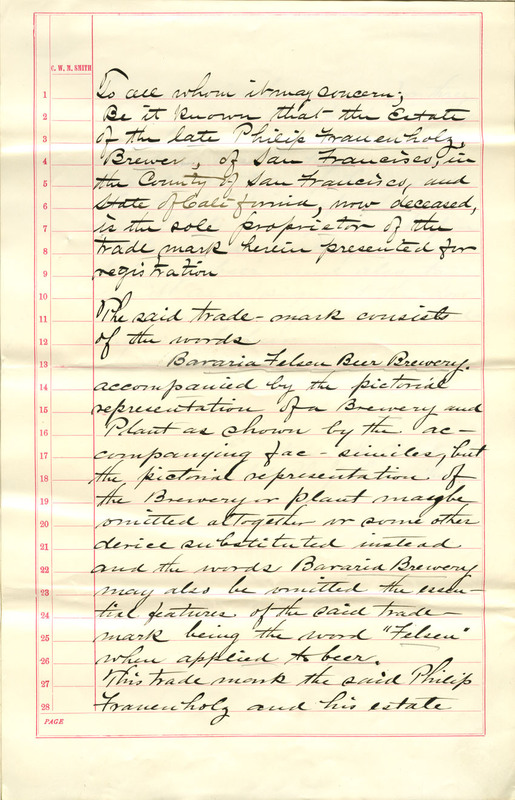 C. W. M. SMITH
1 To all whom it may concern;
2 Be it known that the Estate
3 of the late Philip Frauenholz,
4 Brewer, of San Francisco, in
5 the County of San Francisco, and
6 State of California, now deceased,
7 is the sole proprietor of the
8 trade mark herein presented for
9 registration
10
11 The said trade-mark consists
12 of the words
13 Bavaria Felsen Beer Brewery.
14 accompanied by the pictorial
15 representation of a Brewery and
16 Plant as shown by the ac-
17 companying fac-similes, but
18 the pictorial representation of
19 the Brewery or Plant may be
20 omitted altogether or some other
21 device substituted instead
22 and the words Bavaria Brewery
23 may also be omitted the essen-
24 tial features of the said trade-
25 mark being the word "Felsen"
26 when applied to beer.
27 This trade mark the said Philip
28 Frauenholz and his estate
PAGE